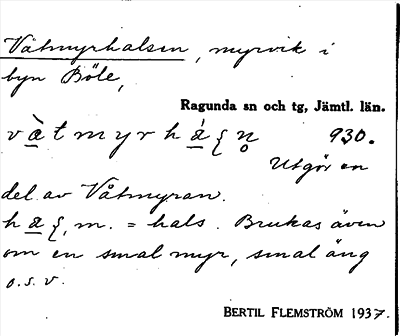 Våtmyrhalsen, myrvik i
byn Böle,
Ragunda sn och tg, Jämtl. län.
vàtmyrhá{n̥ 930.
Utgör en
del av Våtmyran.
ha{, m. = hals. Brukas även
om en smal myr, smal äng
o.s.v.
BERTIL FLEMSTRÖM 1937.